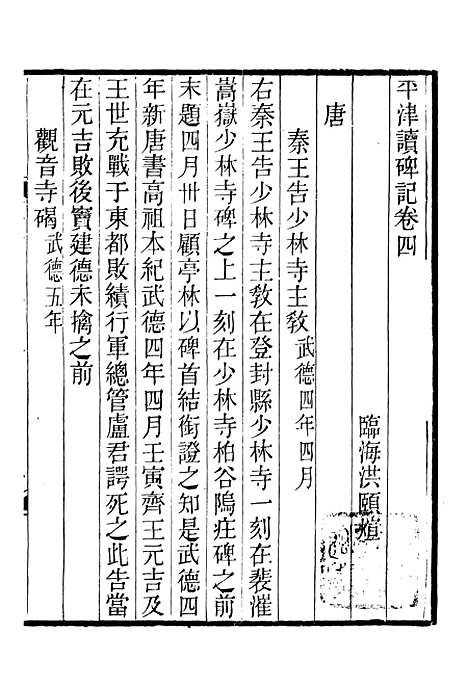 平津讀碑記卷四
臨海洪頤煊
唐
秦王告少林寺主教武德四年四月
右秦王告少林寺主教在登封縣少林寺一刻在裴漼
嵩嶽少林寺碑之上一刻在少林寺柏谷隖庄碑之前
末題四月卅日顧亭林以碑首結銜證之知是武德四
年新唐書高祖本紀武德四年四月壬寅齊王元吉及
王世充戰于東都敗績行軍總管盧君諤死之此告當
在元吉敗後竇建德未擒之前
觀音寺碣武德五年